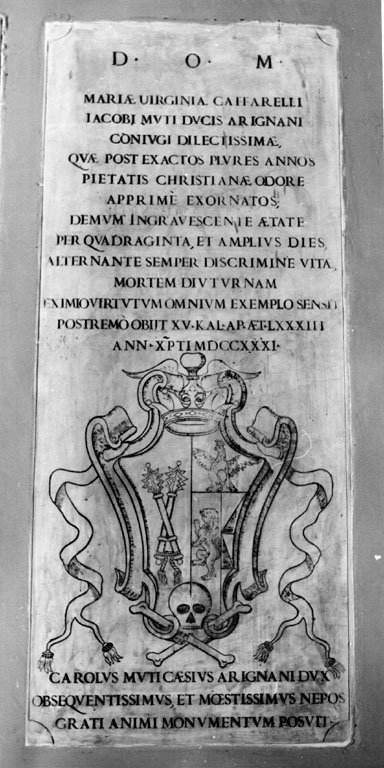 D · O · M ·
MARIÆ UIRGINIA. CAFFARELLI
IACOBI MUTI DUCIS ARIGNANI
CONIUGI DILECTISSIMÆ,
QUÆ POST EXACTOS PLURES ANNOS
PIETATIS CHRISTIANÆ ODORE
APPRIMÈ EXORNATOS;
DEMUM INGRAVESCENTE ÆTATE
PER QUADRAGINTA, ET AMPLIUS DIES
ALTERNANTE SEMPER DISCRIMINE VITA,
MORTEM DIUTURNAM
EXIMIO VIRTUTUM OMNIUM EXEMPLO SENSIT
POSTREMÒ OBIIT XV · KAL · AP · ÆT · LXXXIII
ANN · XPTI MDCCXXXI ·
CAROLUS MUTI CÆSIUS ARIGNANI DUX
OBSEQUENTISSIMUS, ET MŒSTISSIMUS NEPOS
GRATI ANIMI MONUMENTUM POSUIT ·